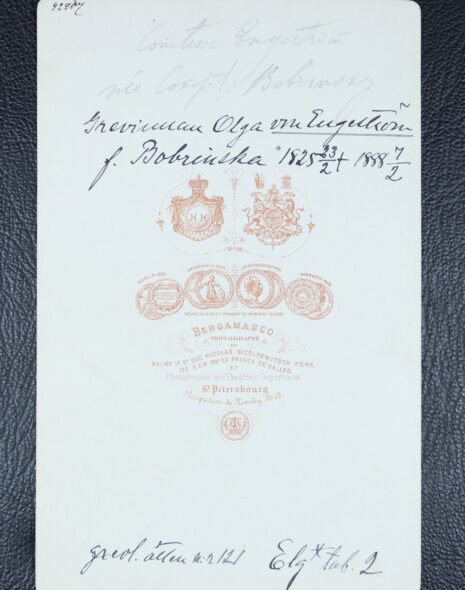 Comtesse Engeström
née Bobrinsky
Grevinnan Olga von Engeström
f. Bobrinska *1825 23/2 † 1888 7/2
BERGAMASCO
PHOTOGRAPHE
DE
S.A.I. MGR LE GD DUC NICOLAS NICOLAEWITSCH, PÈRE
DE S.A.R. MGR LE PRINCE DE GALLES
ET
Photographe des Théâtres Impériaux
St Petersbourg
Perspective de Newsky No 12
grevl. ätten n:r 121 Elgst tab. 2